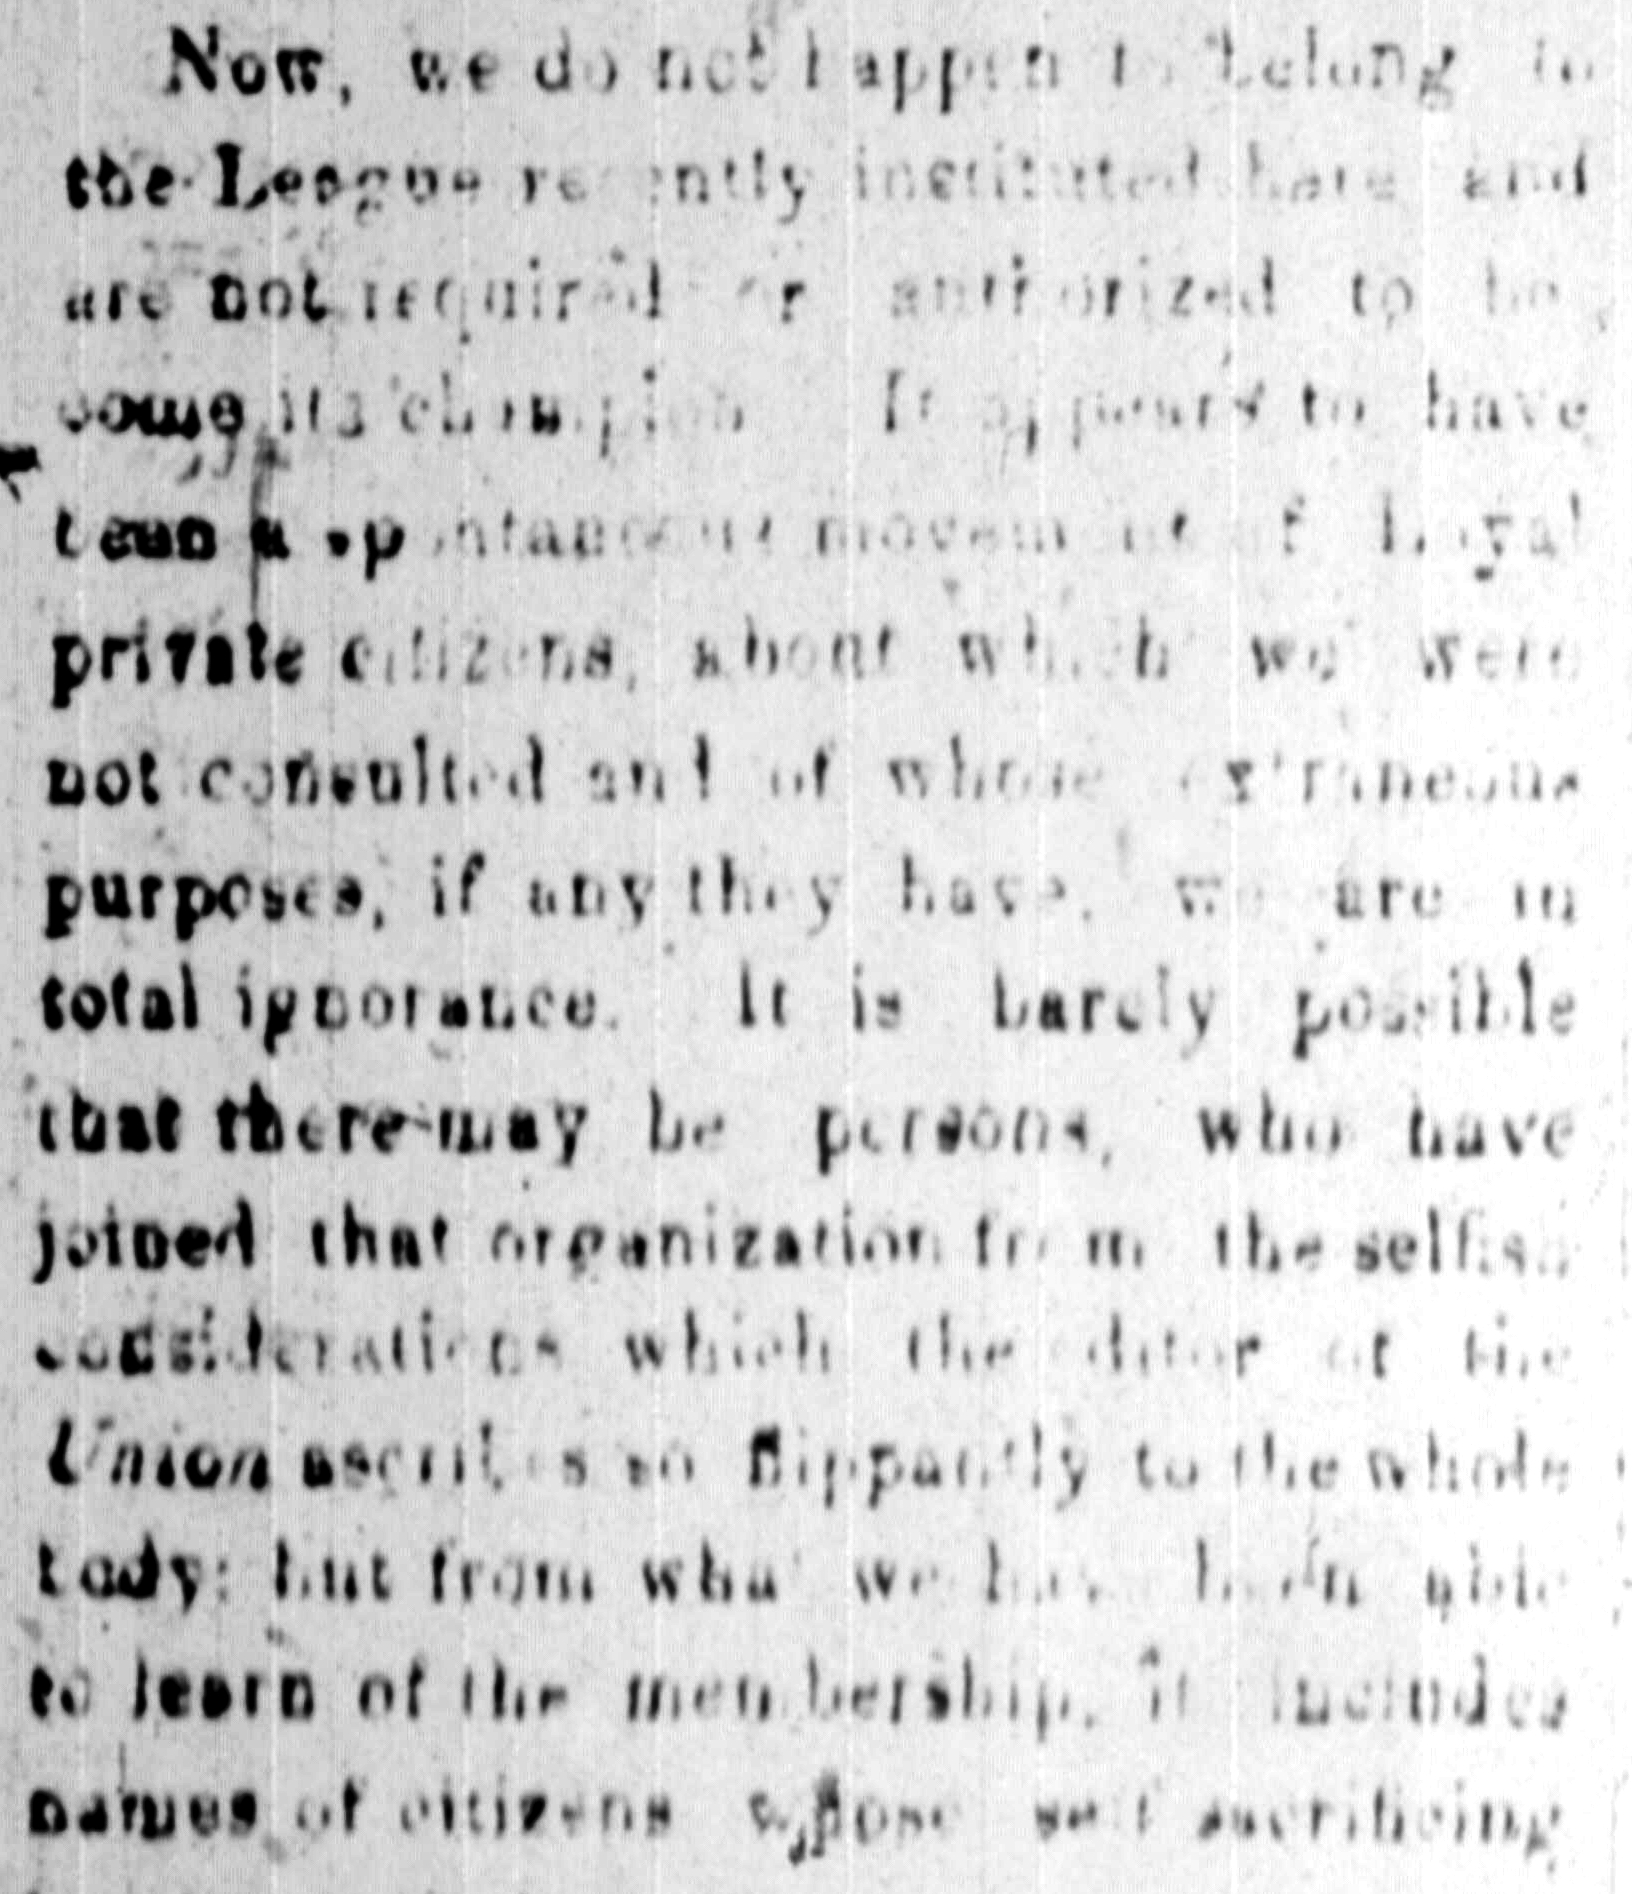 Now, we do not happen to belong to
the League recently instituted here and
are not required or authorized to be
come its champion. It appears to have
been a spontaneous movement of Loyal
private citizens, about which we were
not consulted and of whose extraneous
purposes, if any they have, we are in
total ignorance. It is barely possible
that there may be persons, who have
joined that organization from the selfish
considerations which the editor of the
Union ascribes so flippantly to the whole
body: but from what we have been able
to learn of the membership, it includes
names of citizens whose self sacrificing